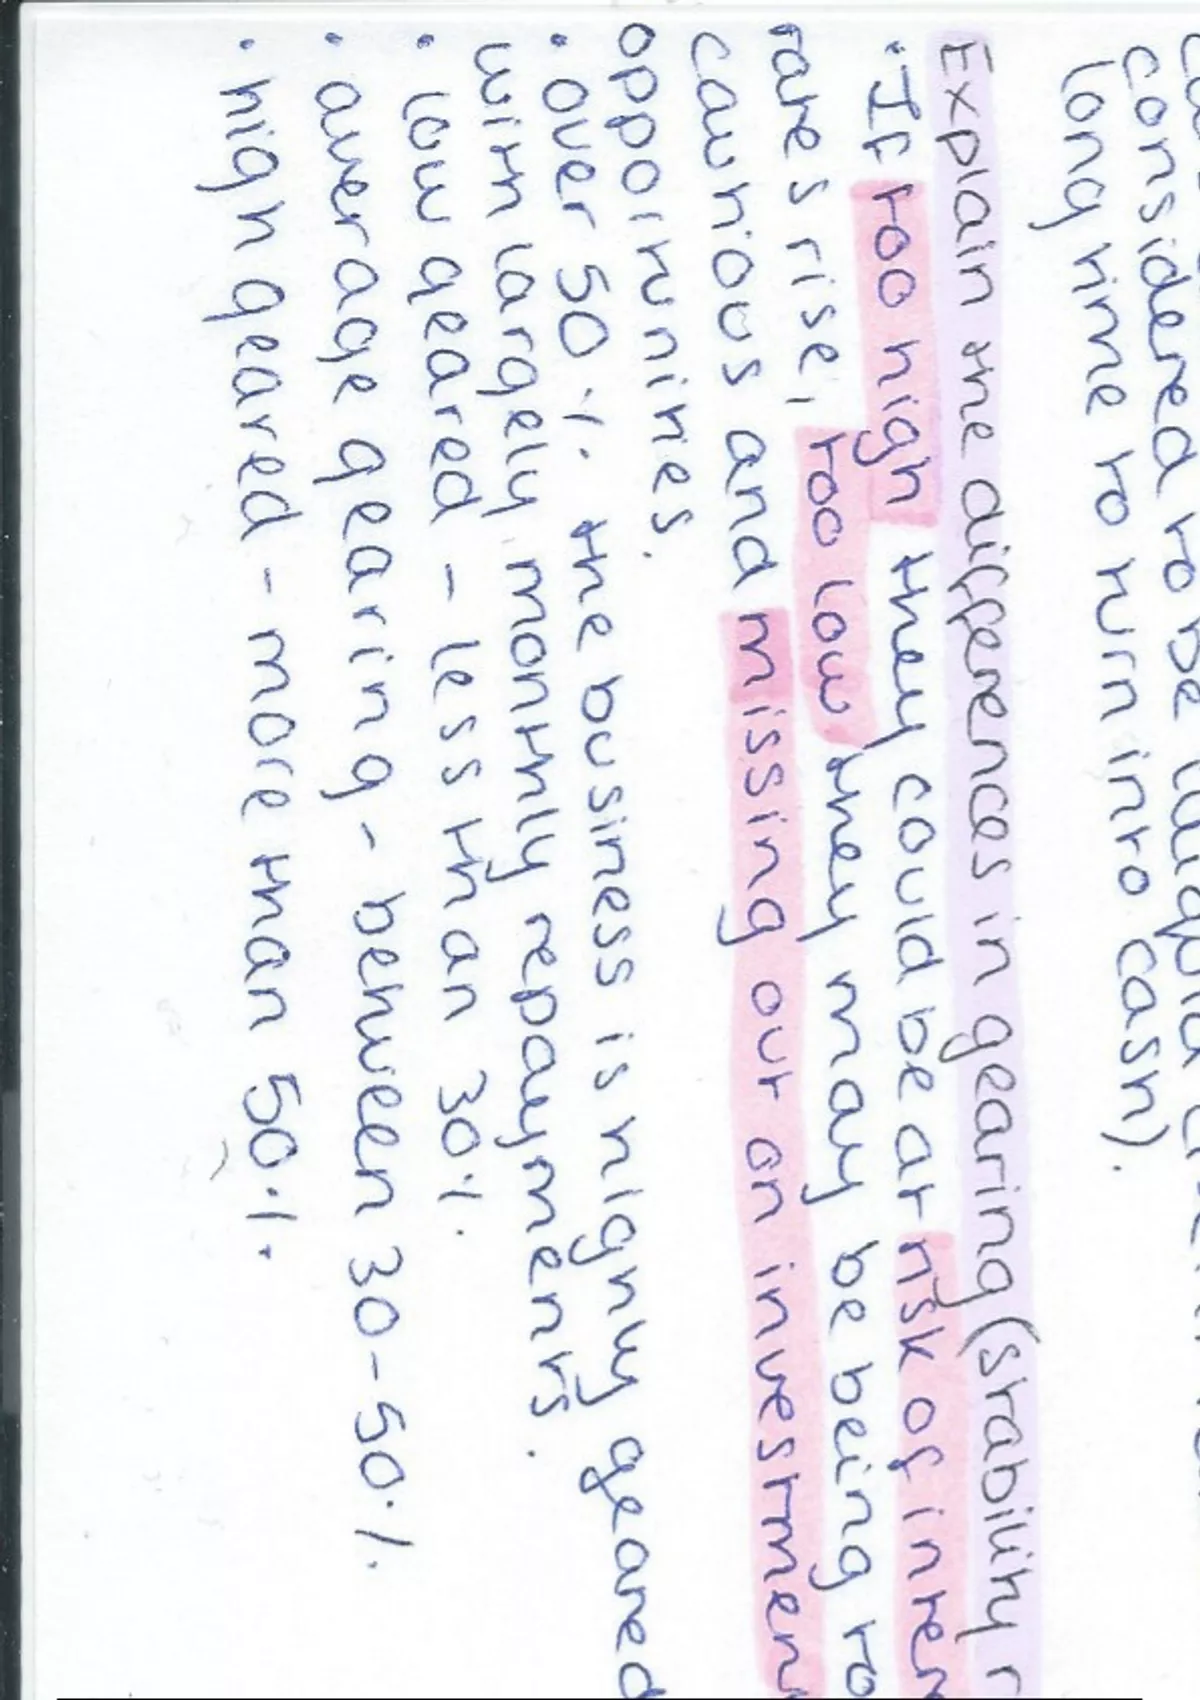 considered to be
long time to turn into cash).
Explain the differences in gearing (stability r
• If too high they could be at risk of inter
rates rise, too low they may be being to
cautious and missing out on investmen
opportunities.
• over 50%. the business is highly geared
with largely monthly repayments.
• low geared - less than 30%.
• average gearing - between 30-50%.
• high geared - more than 50%.